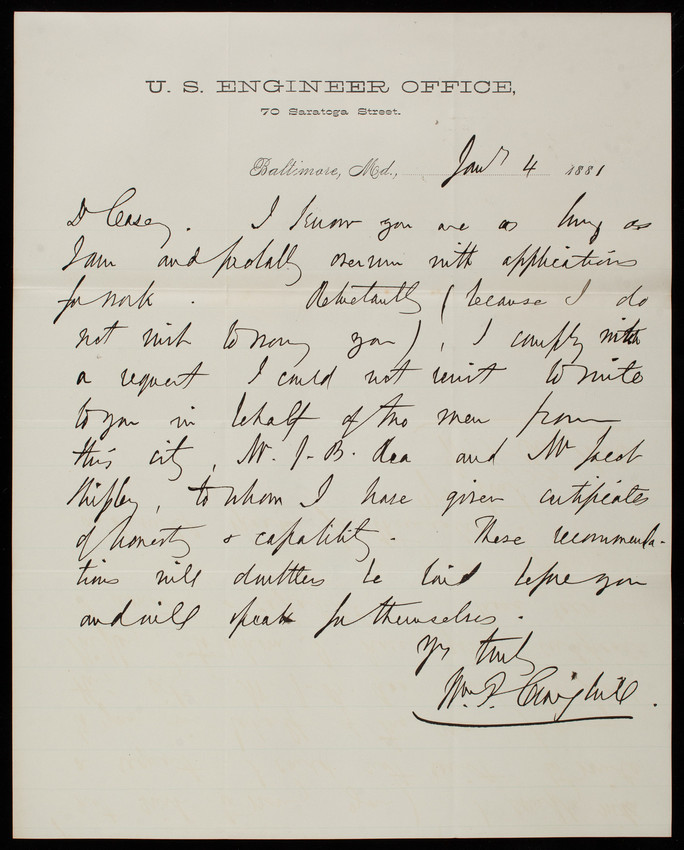 U. S. ENGINEER OFFICE,
70 Saratoga Street.
Baltimore, Md., Jany 4 1881
Dr Casey. I know you are as busy as
I am and probably overrun with applications
for work. Reluctantly (because I do
not wish to worry you), I comply with
a request I could not resist to write
to you in behalf of two men from
this city, Mr. J. B. Rea and Mr Jacob
Shipley, to whom I have given certificates
of honesty & capability. These recommenda-
tions will doubtless be laid before you
and will speak for themselves.
Yrs truly
Wm. P. Craighill.